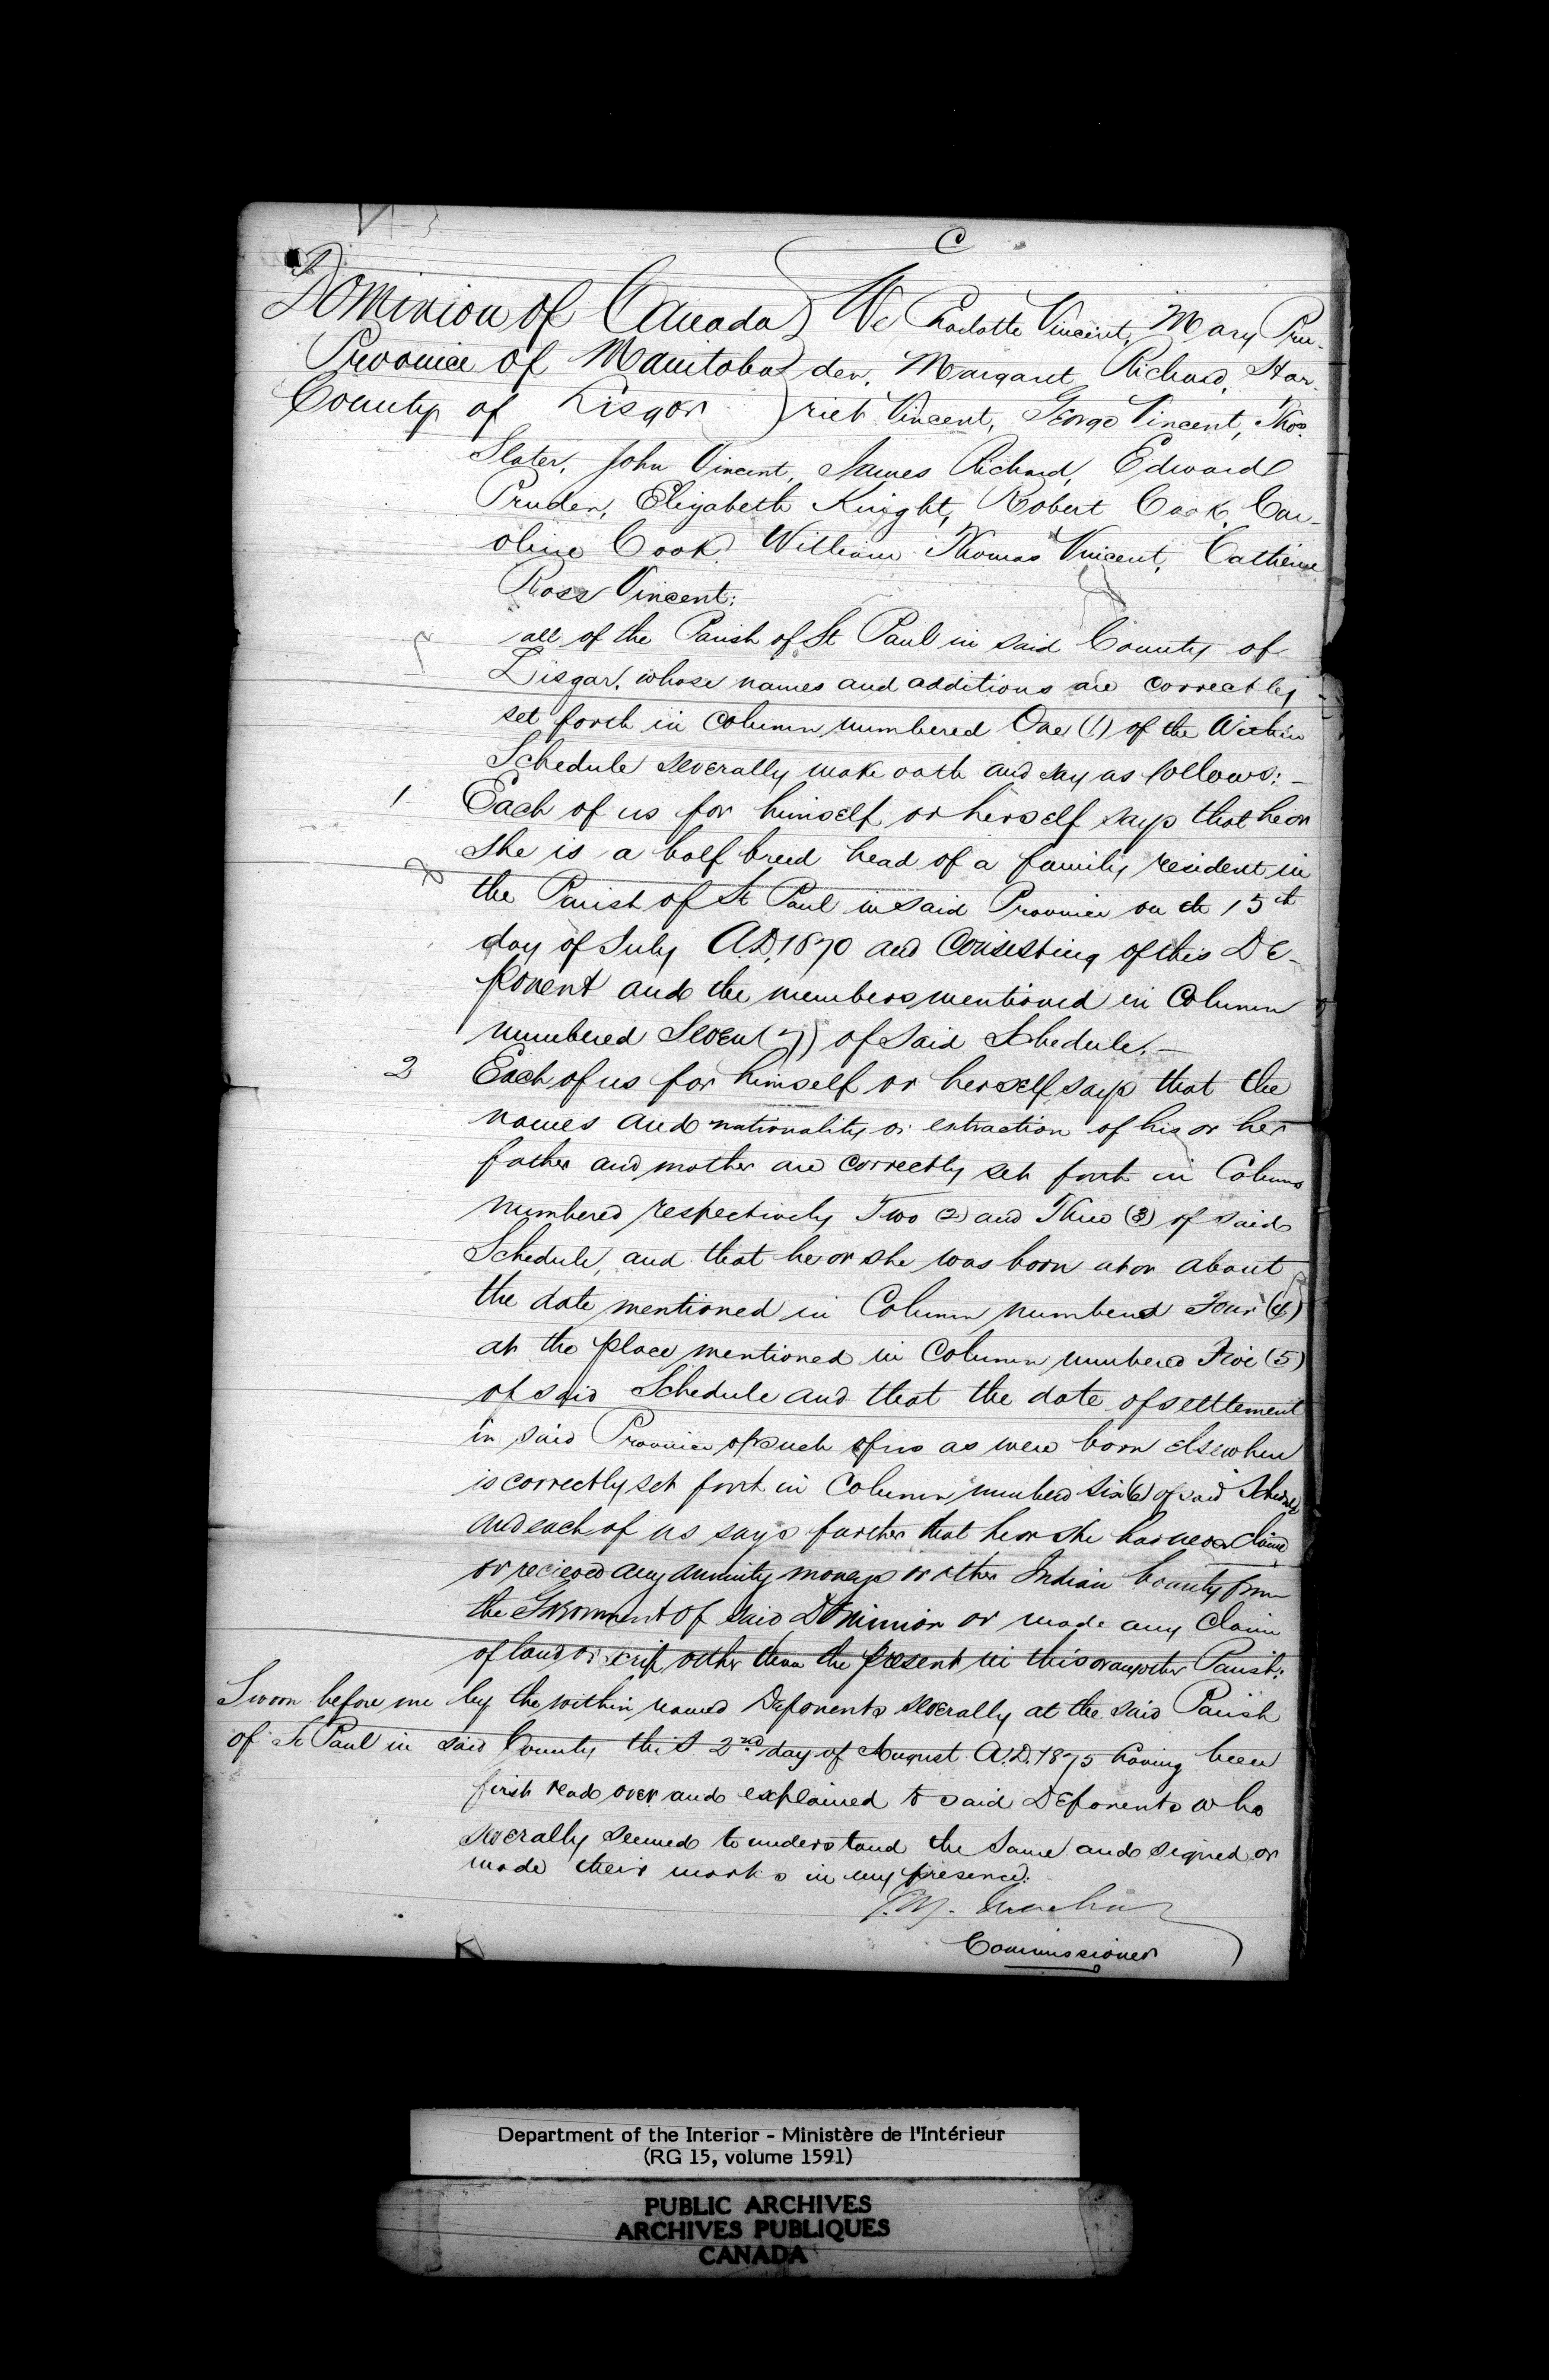 C
Dominion of Canada } We Charlotte Vincent, Mary Pru-
Province of Manitoba } den, Margaret Richard, Har-
County of Lisgar } riet Vincent, George Vincent, Thos.
Slater, John Vincent, James Richard, Edward
Pruden, Elizabeth Knight, Robert Cook, Car-
oline Cook, William Thomas Vincent, Catherine
Ross Vincent;
all of the Parish of St Paul in said County of
Lisgar, whose names and additions are correctly
set forth in column numbered One (1) of the Within
Schedule severally make oath and say as follows: —
1 Each of us for himself or herself says that he or
she is a half breed head of a family resident in
the Parish of St Paul in said Province on the 15th
day of July A.D. 1870 and Consisting of this De-
ponent and the members mentioned in Column
numbered Seven (7) of said Schedule. —
2 Each of us for himself or herself says that the
names and nationality or extraction of his or her
father and mother are correctly set forth in Columns
numbered respectively Two (2) and Three (3) of said
Schedule, and that he or she was born at or about
the date mentioned in Column numbered Four (4)
at the place mentioned in Column numbered Five (5)
of said Schedule and that the date of settlement
in said Province of such of us as were born elsewhere
is correctly set forth in Column numbered Six (6) of said Schedule
and each of us says further that he or she has never claimed
or recieved any annuity moneys or other Indian bounty from
the Government of said Dominion or made any Claim
of land or scrip other than the present in this or any other Parish:
Sworn before me by the within named Deponents severally at the said Parish
of St Paul in said County this 2nd day of August A.D. 1875 having been
first read over and explained to said Deponents who
severally seemed to understand the same and signed or
made their marks in my presence.
J. M. Machar
Commissioner
Department of the Interior - Ministère de l'Intérieur
(RG 15, volume 1591)
PUBLIC ARCHIVES
ARCHIVES PUBLIQUES
CANADA